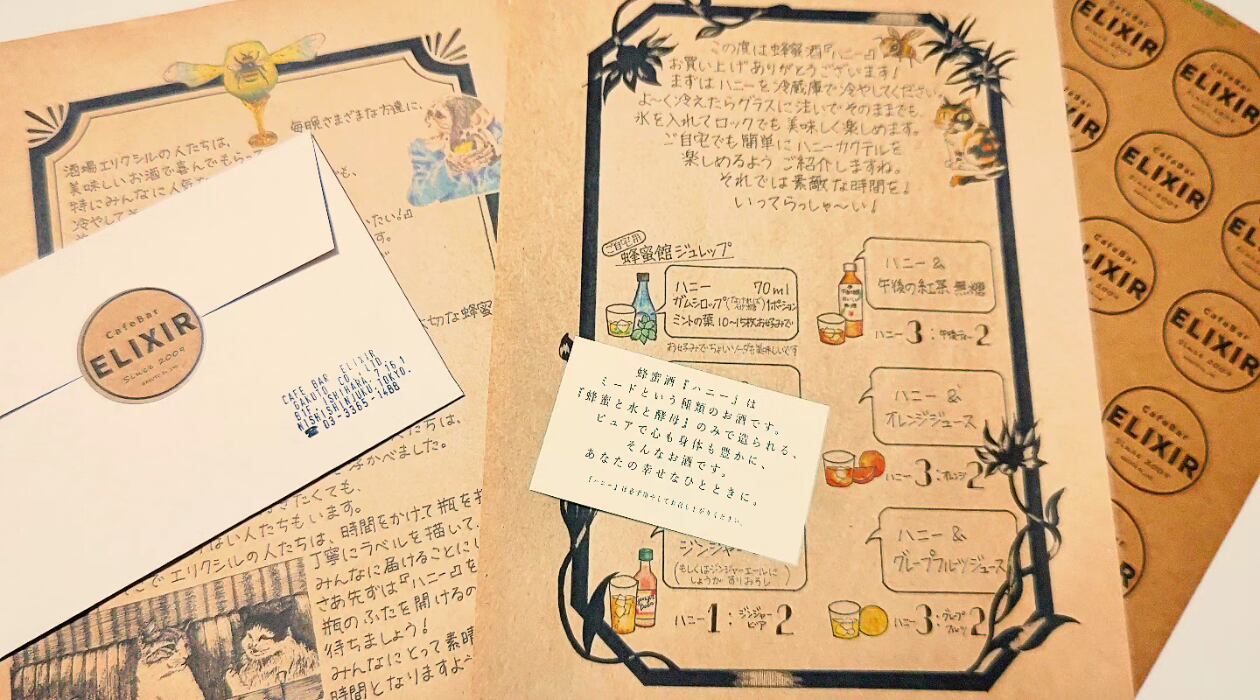 毎晩さまざまな方達に、
酒場エリクシルの人たちは、
美味しいお酒で喜んでもらって
特にみんなに人気
冷やして
たい!』
す。
大切な蜂蜜
人たちは、
浮かべました。
きたくても、
ない人たちもいます。
で エリクシルの人たちは、時間をかけて瓶を
丁寧にラベルを描いて、
みんなに届けることに
さあ先ずは『ハニー』を
瓶のふたを開けるの
待ちましょう!
みんなにとって素晴
時間となりますよう
CafeBar
ELIXIR
SINCE 2009
CAFE BAR ELIXIR
GAKUTO CO.,LTD.
NISHISHINJUKU,TOKYO.
☎ 03-3365-1488
この度は蜂蜜酒『ハニー』
お買い上げありがとうございます!
まずはハニーを冷蔵庫で冷やしてください。
よ〜く冷えたらグラスに注いでそのままでも、
氷を入れてロックでも美味しく楽しめます。
ご自宅でも簡単にハニーカクテルを
楽しめるよう ご紹介しますね。
それでは素敵な時間を!
いってらっしゃ〜い!
ご自宅用
蜂蜜館ジュレップ
ハニー 70ml
ガムシロップ 1ポーション
ミントの葉 10~15枚お好みで
お好みでちょいソーダも美味しいです
ハニー &
午後の紅茶 無糖
ハニー 3:午後ティー 2
ハニー &
オレンジジュース
ハニー 3:オレンジ 2
ジンジャー
(もしくはジンジャーエールに
しょうが すりおろし)
ハニー 1:ジンジャービア 2
ハニー &
グレープフルーツジュース
ハニー 3:グレープフルーツ 2
蜂蜜酒『ハニー』は
ミードという種類のお酒です。
『蜂蜜と水と酵母』のみで造られる、
ピュアで心も身体も豊かに、
そんなお酒です。
あなたの幸せなひとときに。
『ハニー』は必ず冷やしてお召し上がりください。
CafeBar
ELIXIR
SINCE 2009
CafeBar
ELIXIR
SINCE 2009
CafeBar
ELIXIR
SINCE 2009
CafeBar
ELIXIR
SINCE 2009
CafeBar
ELIXIR
SINCE 2009
CafeBar
ELIXIR
SINCE 2009